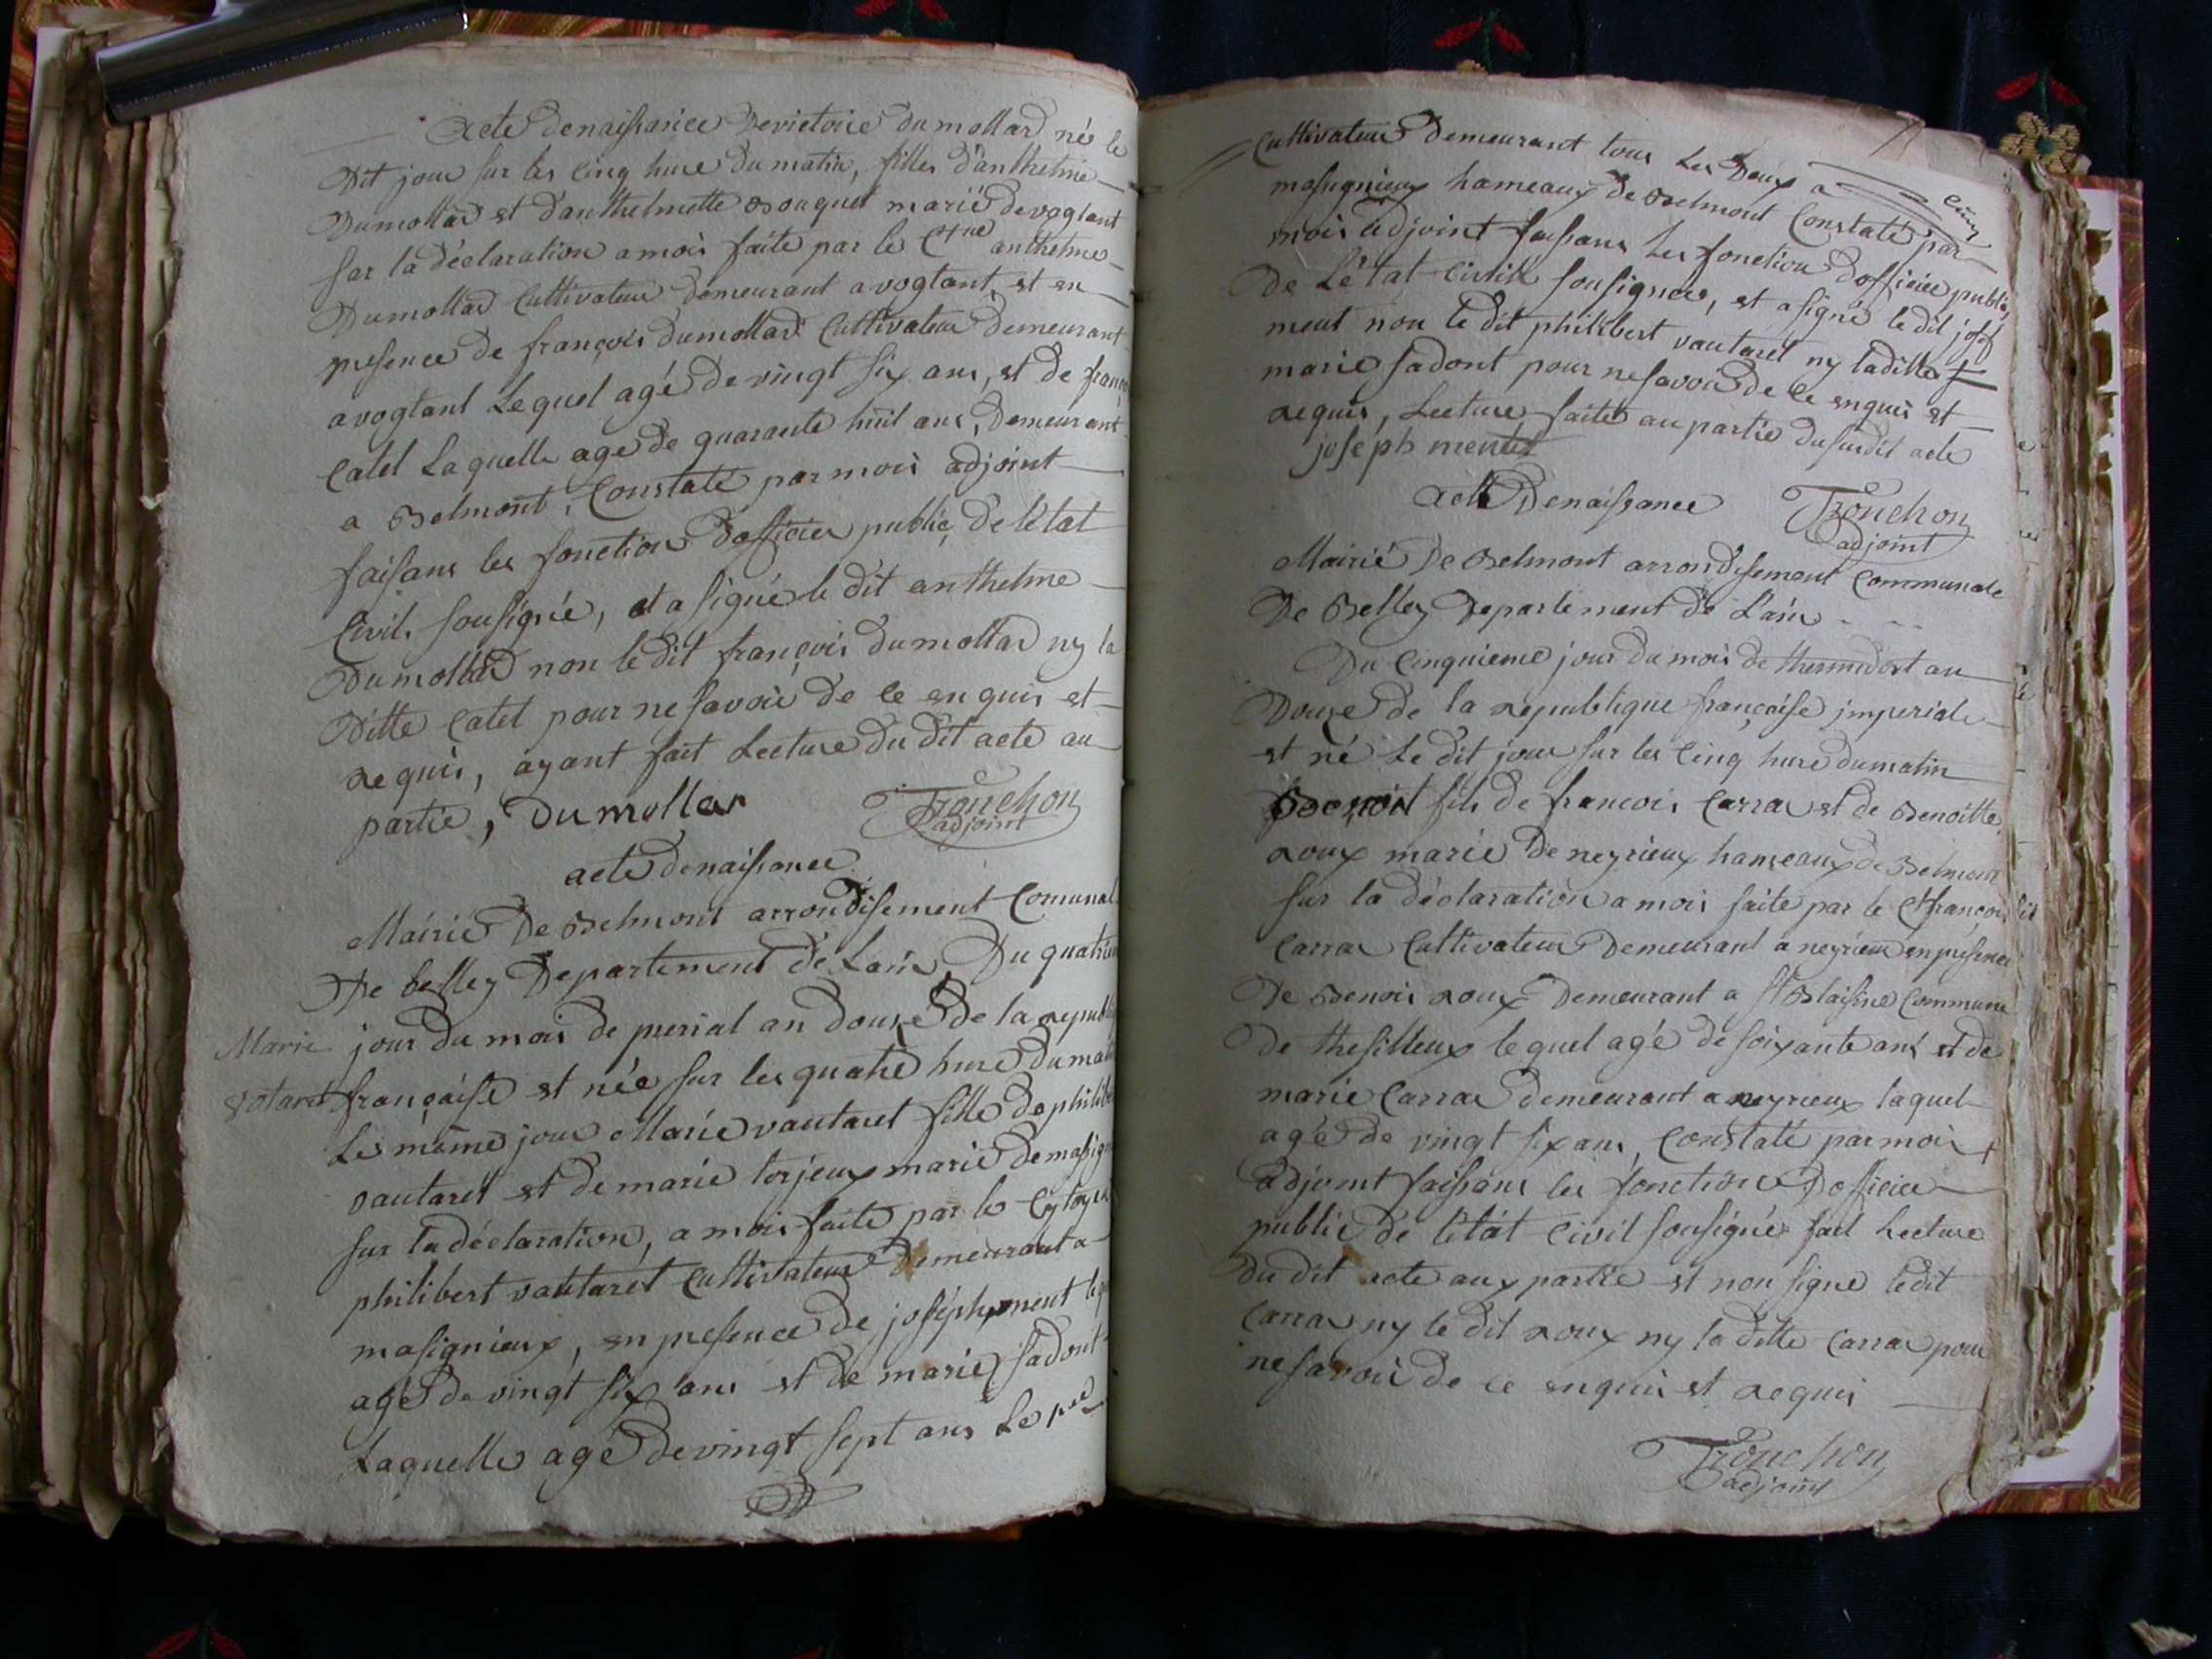 Acte denaissance devictoire dumollar né le
Dit jour sur les cinq hure Du matin, filles d'anthelme
Dumollar et d'anthelmette Bouquet marié devogtant
sur la déclaration amoi faite par le Cne anthelme
Dumollar Cultivateur demeurant avogtant, et en
presence de françois dumollar Cultivateur demeurant
avogtant Lequel agé devingt six ans, et de franç
Catel Laquelle agé de quarante huit ans, Demeurant
a Belmont, Constaté par moi adjoint
faisans les fonction d'officier public, de létat
Civil, sousignié, et a signé le dit anthelme
Dumollar non le dit françois dumollar ny la
Ditte Catel pour ne savoir de ce enquis et
requis, ayant fait Lecture du dit acte au
partie, Dumollar Tronchon
adjoint
acte denaissance
Mairié De Belmont arrondisement Comunal
De belley Departement de Lain, Du quatrie
Marie jour du mois de prerial an douze de la republi
Votaret française et née sur les quatre hure du mati
Le même jour Marie vautaret fille de philibe
vautaret et de marie torjeux marié demasign
sur la déclaration, a moi faite par le Cytoye
philibert vautaret Cultivateur Demeurant a
masignieux, en presence de joseph ment leq
agé de vingt six ans et de marie sadont
Laquelle agé devingt sept ans Le pre
Cultivateur Demeurant tous Les Deux a
masignieux hameaux de Belmont Constaté par
moi adjoint faisans Les fonction d'officier public
de Létat Civil sousignée, et a signé le dit josef
ment non le dit philibert vautaret ny laditte
marie sadont pour ne savoir de ce enquis et
requis, Lecture faite au partie dusurdit acte
joseph mentet
acte Denaissance Tronchon
adjoint
Mairié De Belmont arrondisement Communale
De Belley Departement de Lain
Du Cinquieme jour du mois de thermidort an
Douze de la republique française jmperiale
et né Le dit jour sur les cinq hure dumatin
Benoit fils de francois Carra et de Benoitte
roux marié de neyrieux hameaux de Belmont
sur la déclaration a moi faite par le Ct françois
Carra Cultivateur Demeurant a neyrieux en présence
De Benoi roux Demeurant a St Blaisine Commune
De thesilleux lequel agé de soixante ans et de
marie Carra demeurant a neyrieux laquel
agé de vingt six ans, Constaté par moi
adjoint faisans les fonction D'officier
public de létat Civil sousigné fait Lecture
du dit acte aux partie et non signé ledit
Carra ny le dit roux ny la ditte Carra pour
ne savoir de ce enquis et requis
Tronchon
adjoint